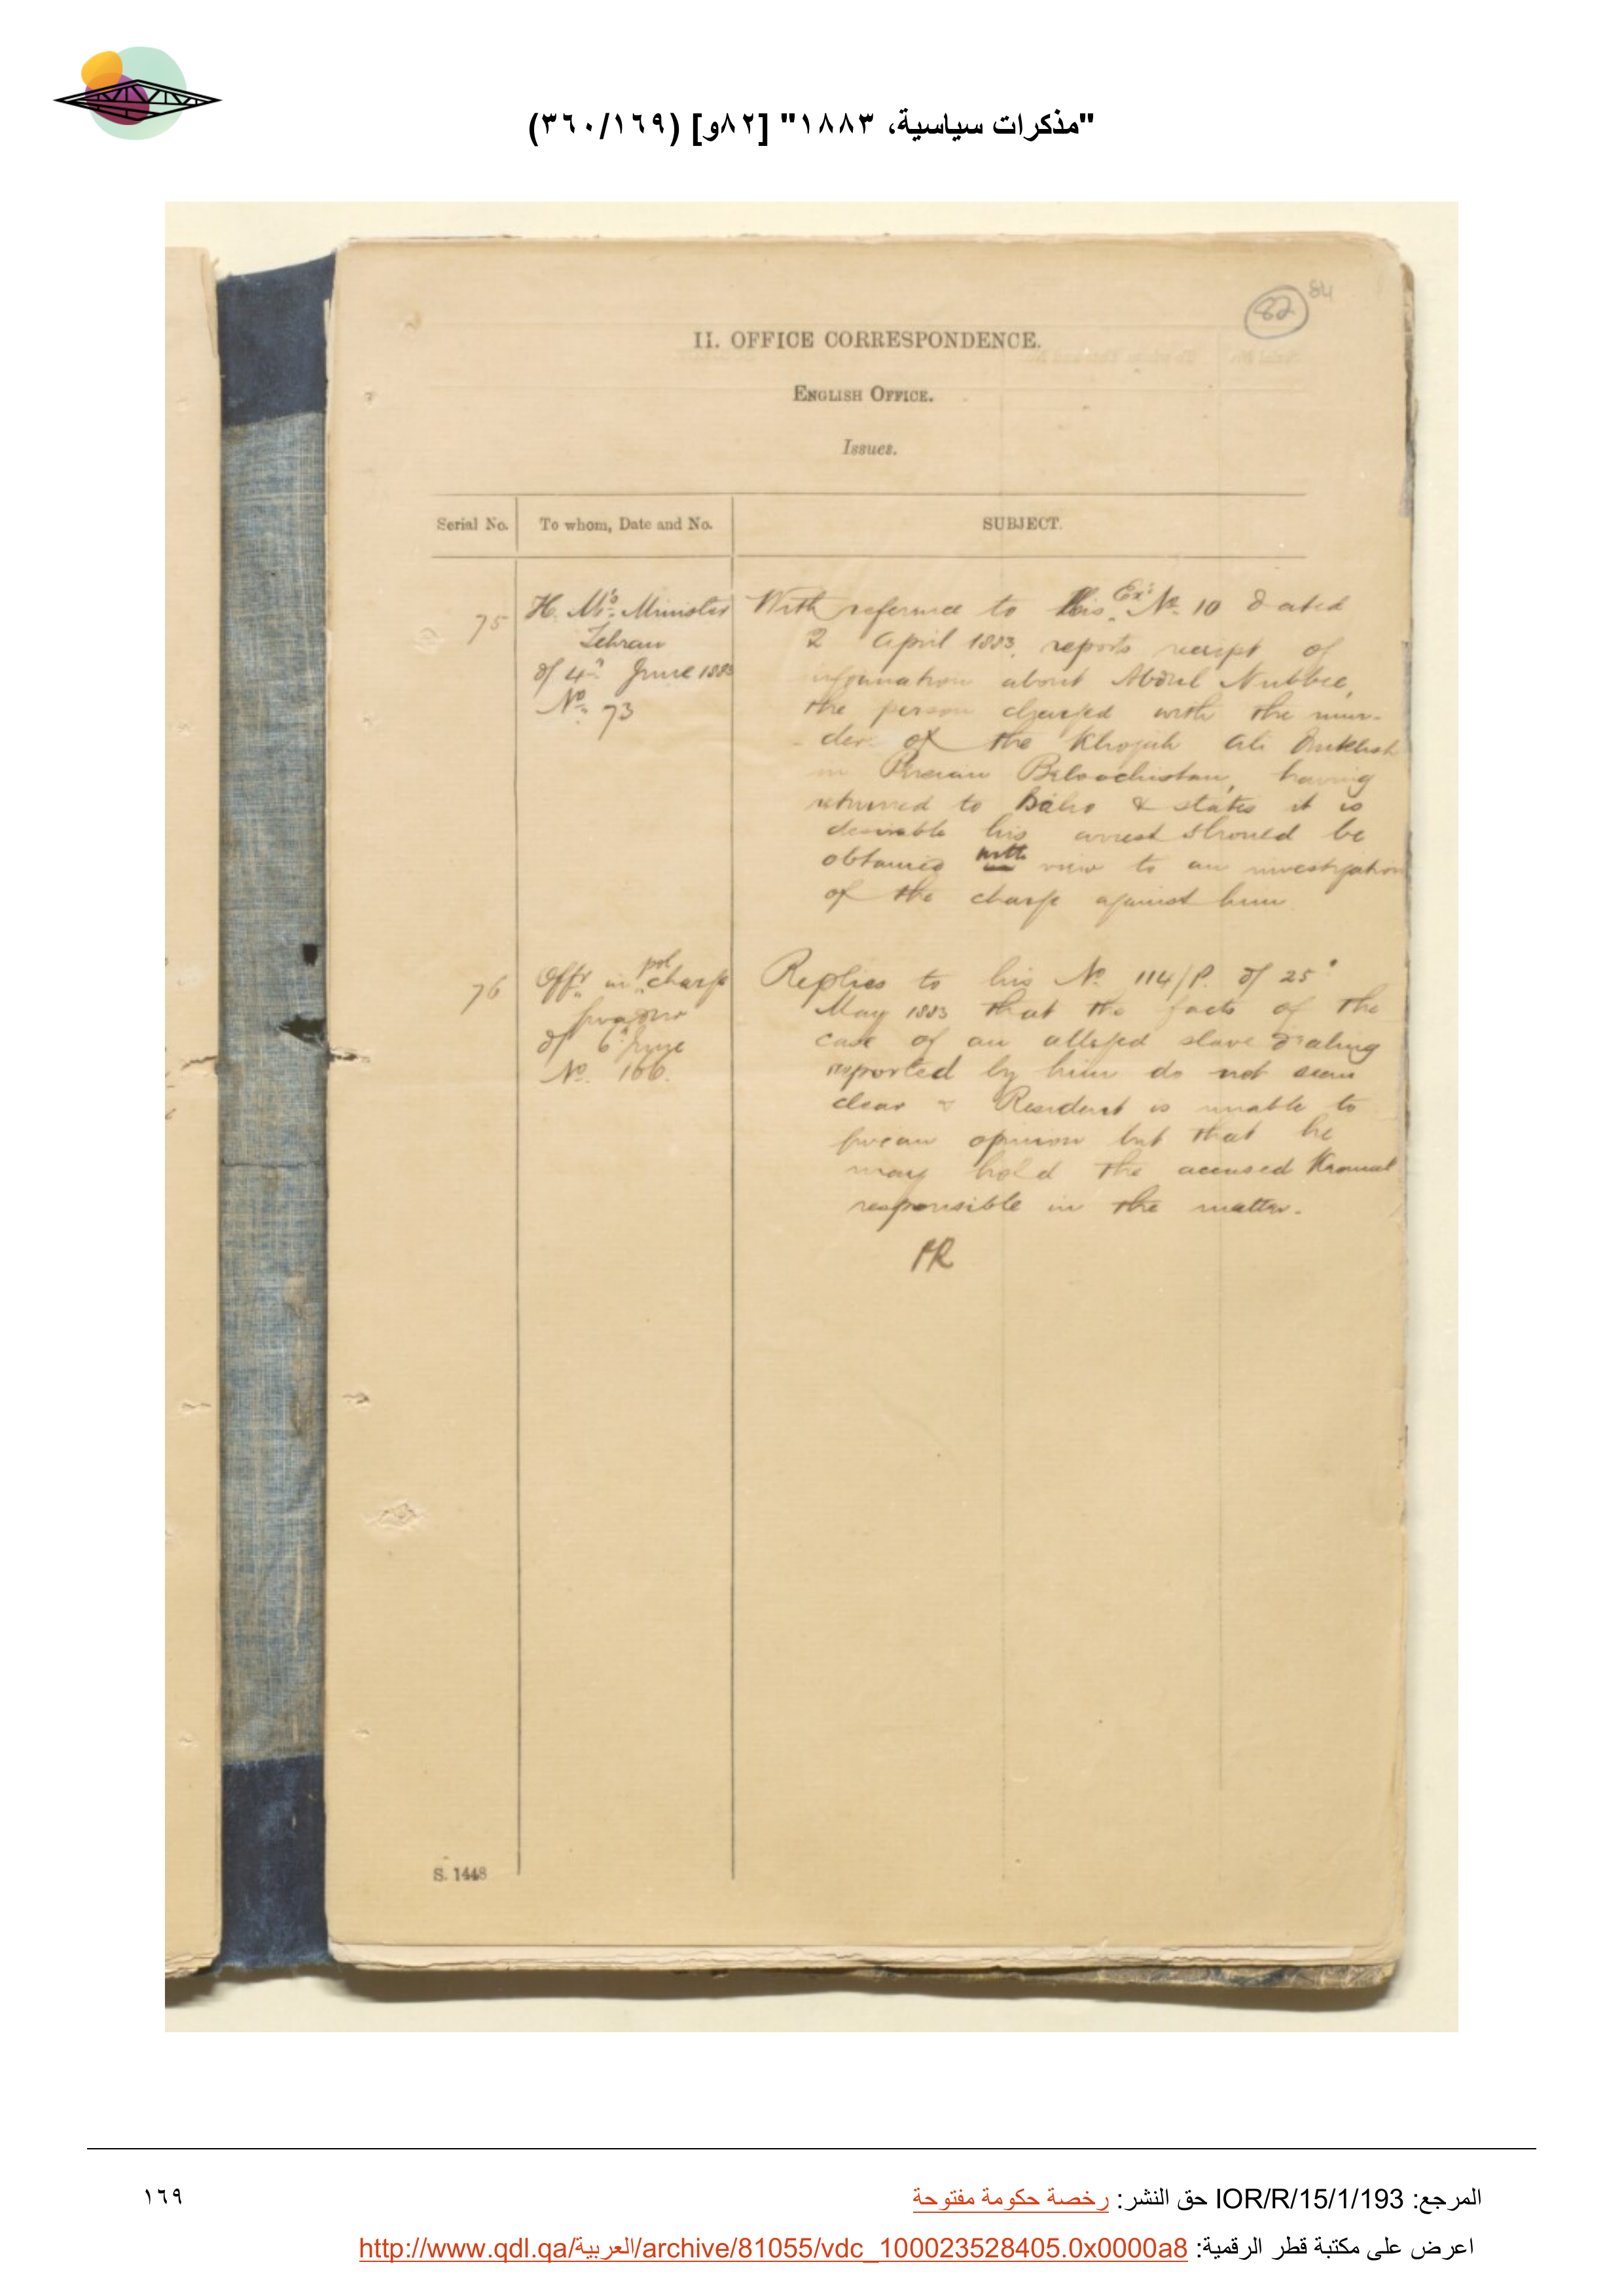 "مذكرات سياسية، ١٨٨٣" [٨٢و] (٣٦٠/١٦٩)
82
84
II. OFFICE CORRESPONDENCE.
ENGLISH OFFICE.
Issues.
Serial No.
To whom, Date and No.
SUBJECT.
75
H. M's Minister
Tehran
d/ 4th June 1883
No. 73
With reference to His Ex's No. 10 dated
2 April 1883, reports receipt of
information about Abdul Nubbee,
the person charged with the mur-
der of the Khojah Ali
in Persian Beloochistan, having
returned to Baho & states it is
desirable his arrest should be
obtained with view to an investigation
of the charge against him
76
Offr in pol charge
d/ 6 June
No. 166.
Replies to his No. 114/P. d/ 25
May 1883 that the facts of the
case of an alleged slave dealing
reported by him do not seem
clear & Resident is unable to
give an opinion but that he
may hold the accused
responsible in the matter.
S. 1448
المرجع: IOR/R/15/1/193 حق النشر: رخصة حكومة مفتوحة
١٦٩
اعرض على مكتبة قطر الرقمية: http://www.qdl.qa/العربية/archive/81055/vdc_100023528405.0x0000a8